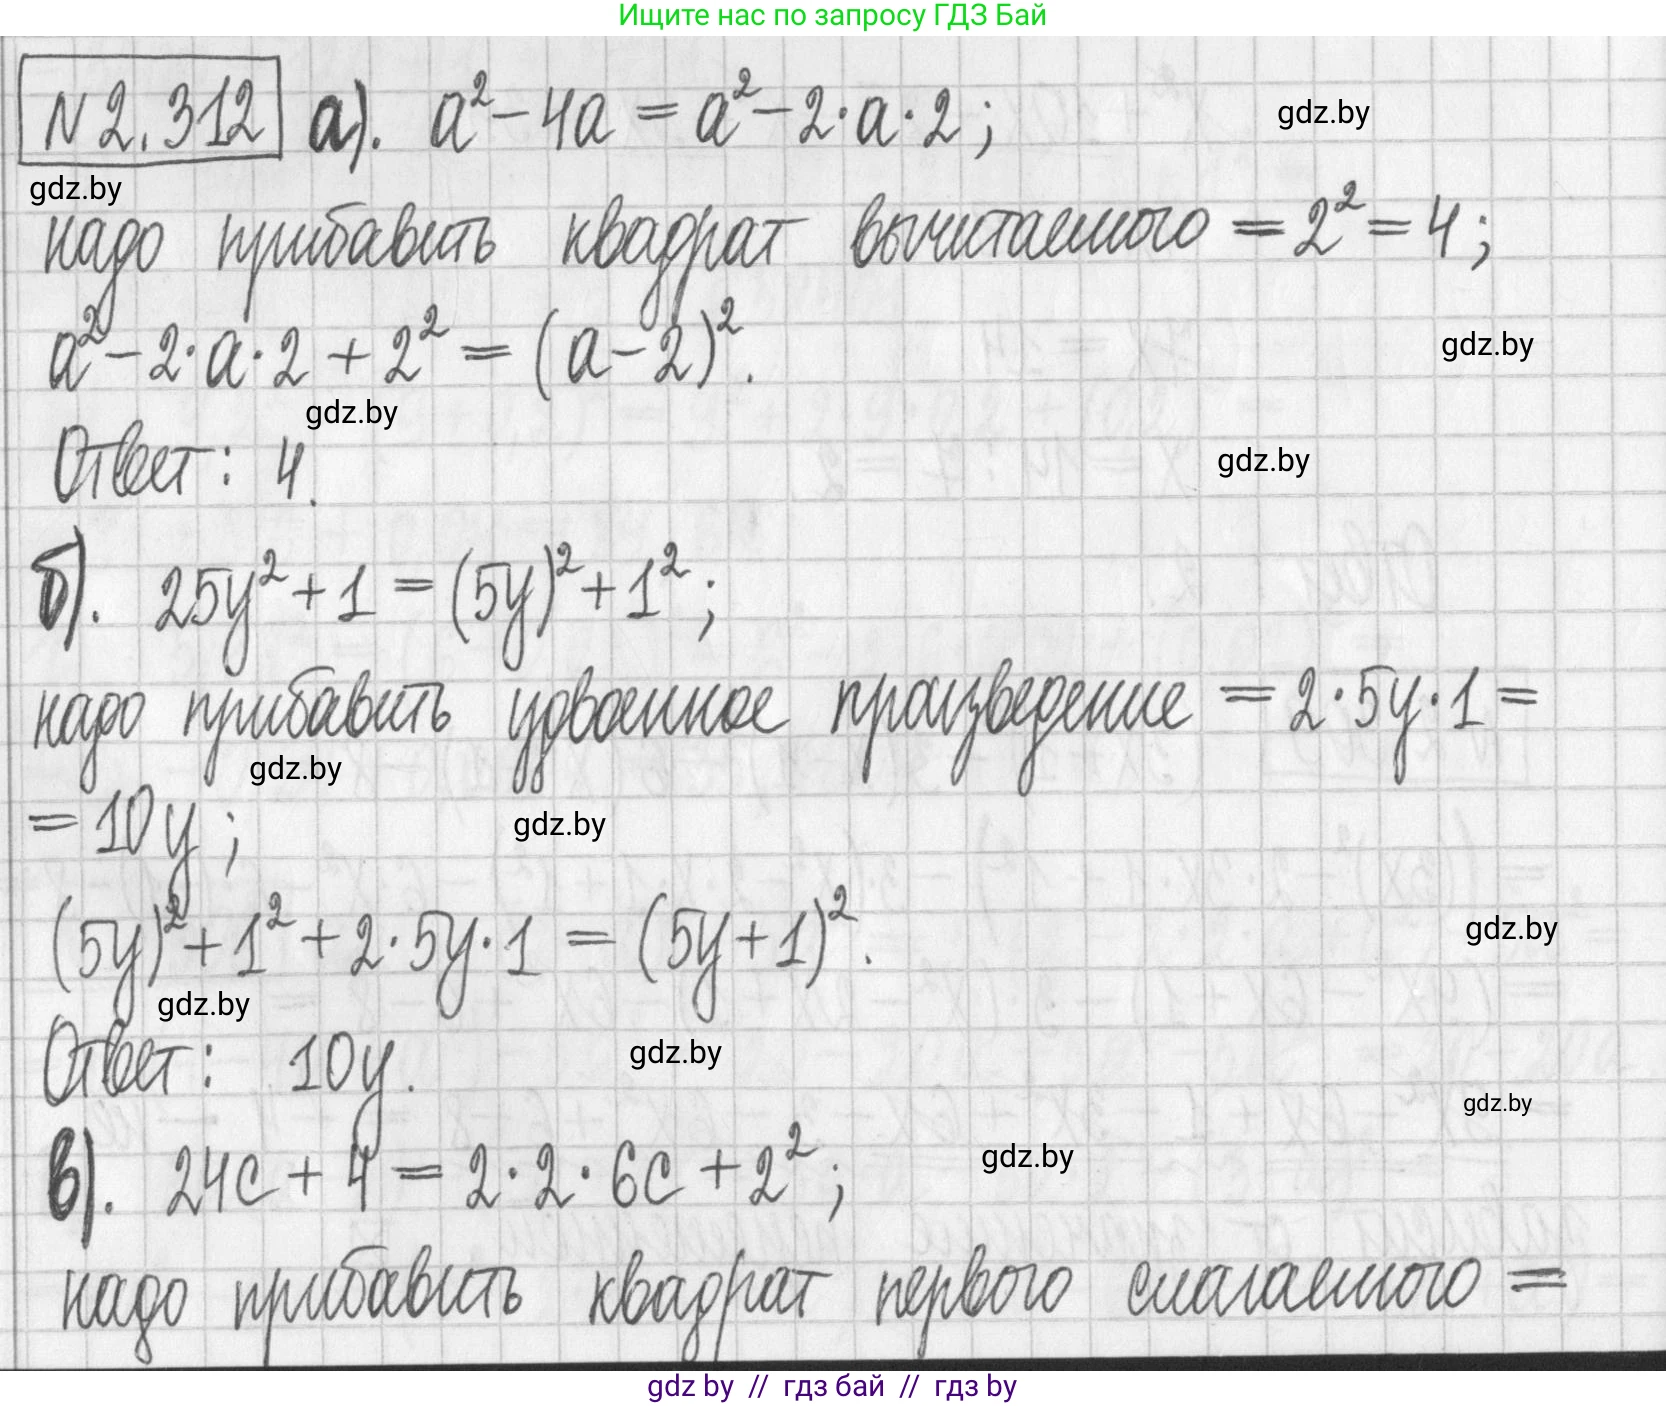 Ищите нас по запросу ГДЗ Бай
N 2.312 а). a² - 4a = a² - 2·a·2;
gdz.by
gdz.by
надо прибавить квадрат вычитаемого = 2² = 4;
a² - 2·a·2 + 2² = (a - 2)².
gdz.by
gdz.by
Ответ: 4.
gdz.by
б). 25y² + 1 = (5y)² + 1²;
надо прибавить удвоенное произведение = 2·5y·1 =
gdz.by
= 10y;
gdz.by
(5y)² + 1² + 2·5y·1 = (5y + 1)².
gdz.by
gdz.by
Ответ: 10y.
gdz.by
gdz.by
в). 24c + 4 = 2·2·6c + 2²;
gdz.by
надо прибавить квадрат первого слагаемого =
gdz by // гдз бай // гдз by